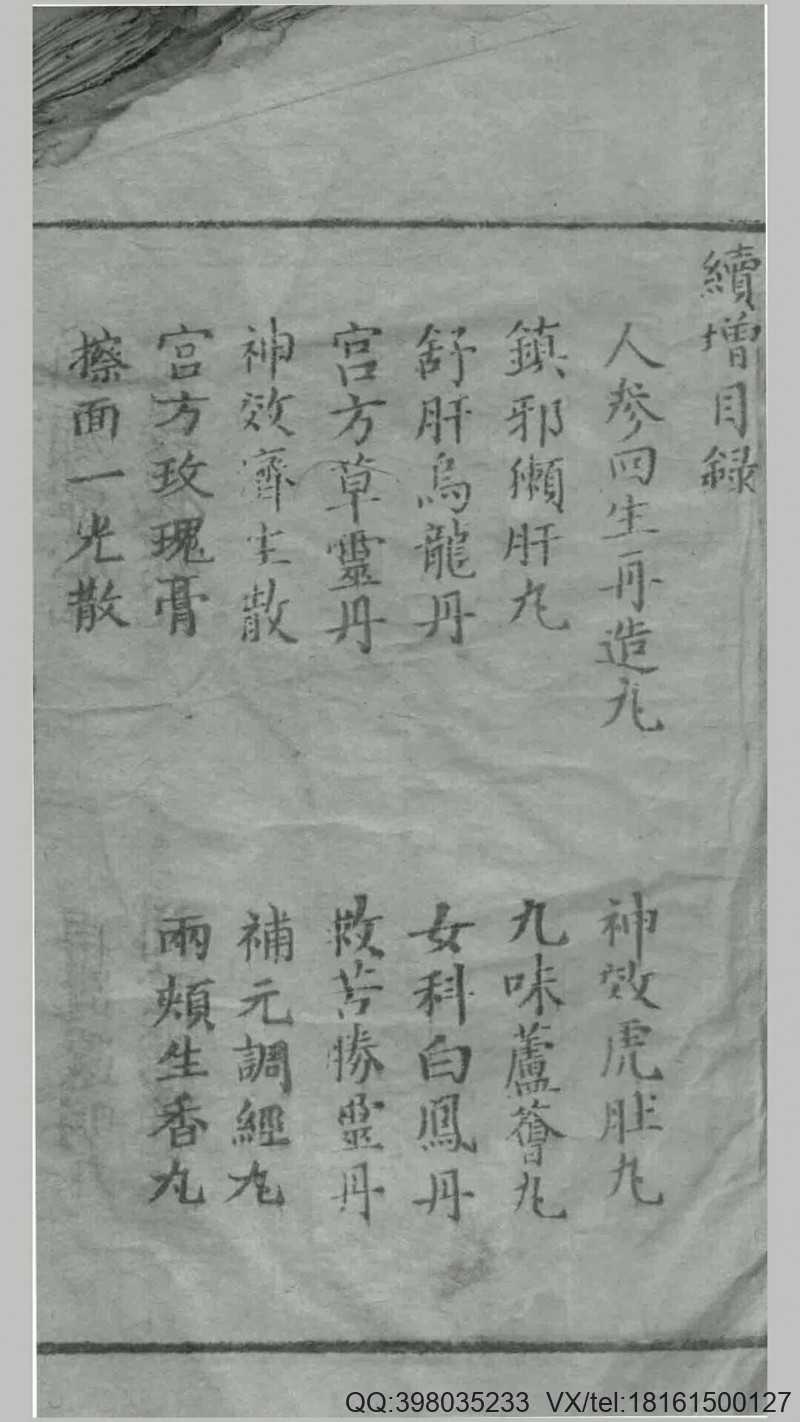 續增目錄
人參回生再造丸
神效虎肚丸
鎮邪獺肝丸
九味蘆薈丸
舒肝烏龍丹
女科白鳳丹
宫方草靈丹
救苦勝靈丹
神效濟生散
補元調經丸
宫方玫瑰膏
兩頰生香丸
擦面一光散
QQ:398035233 VX/tel:18161500127